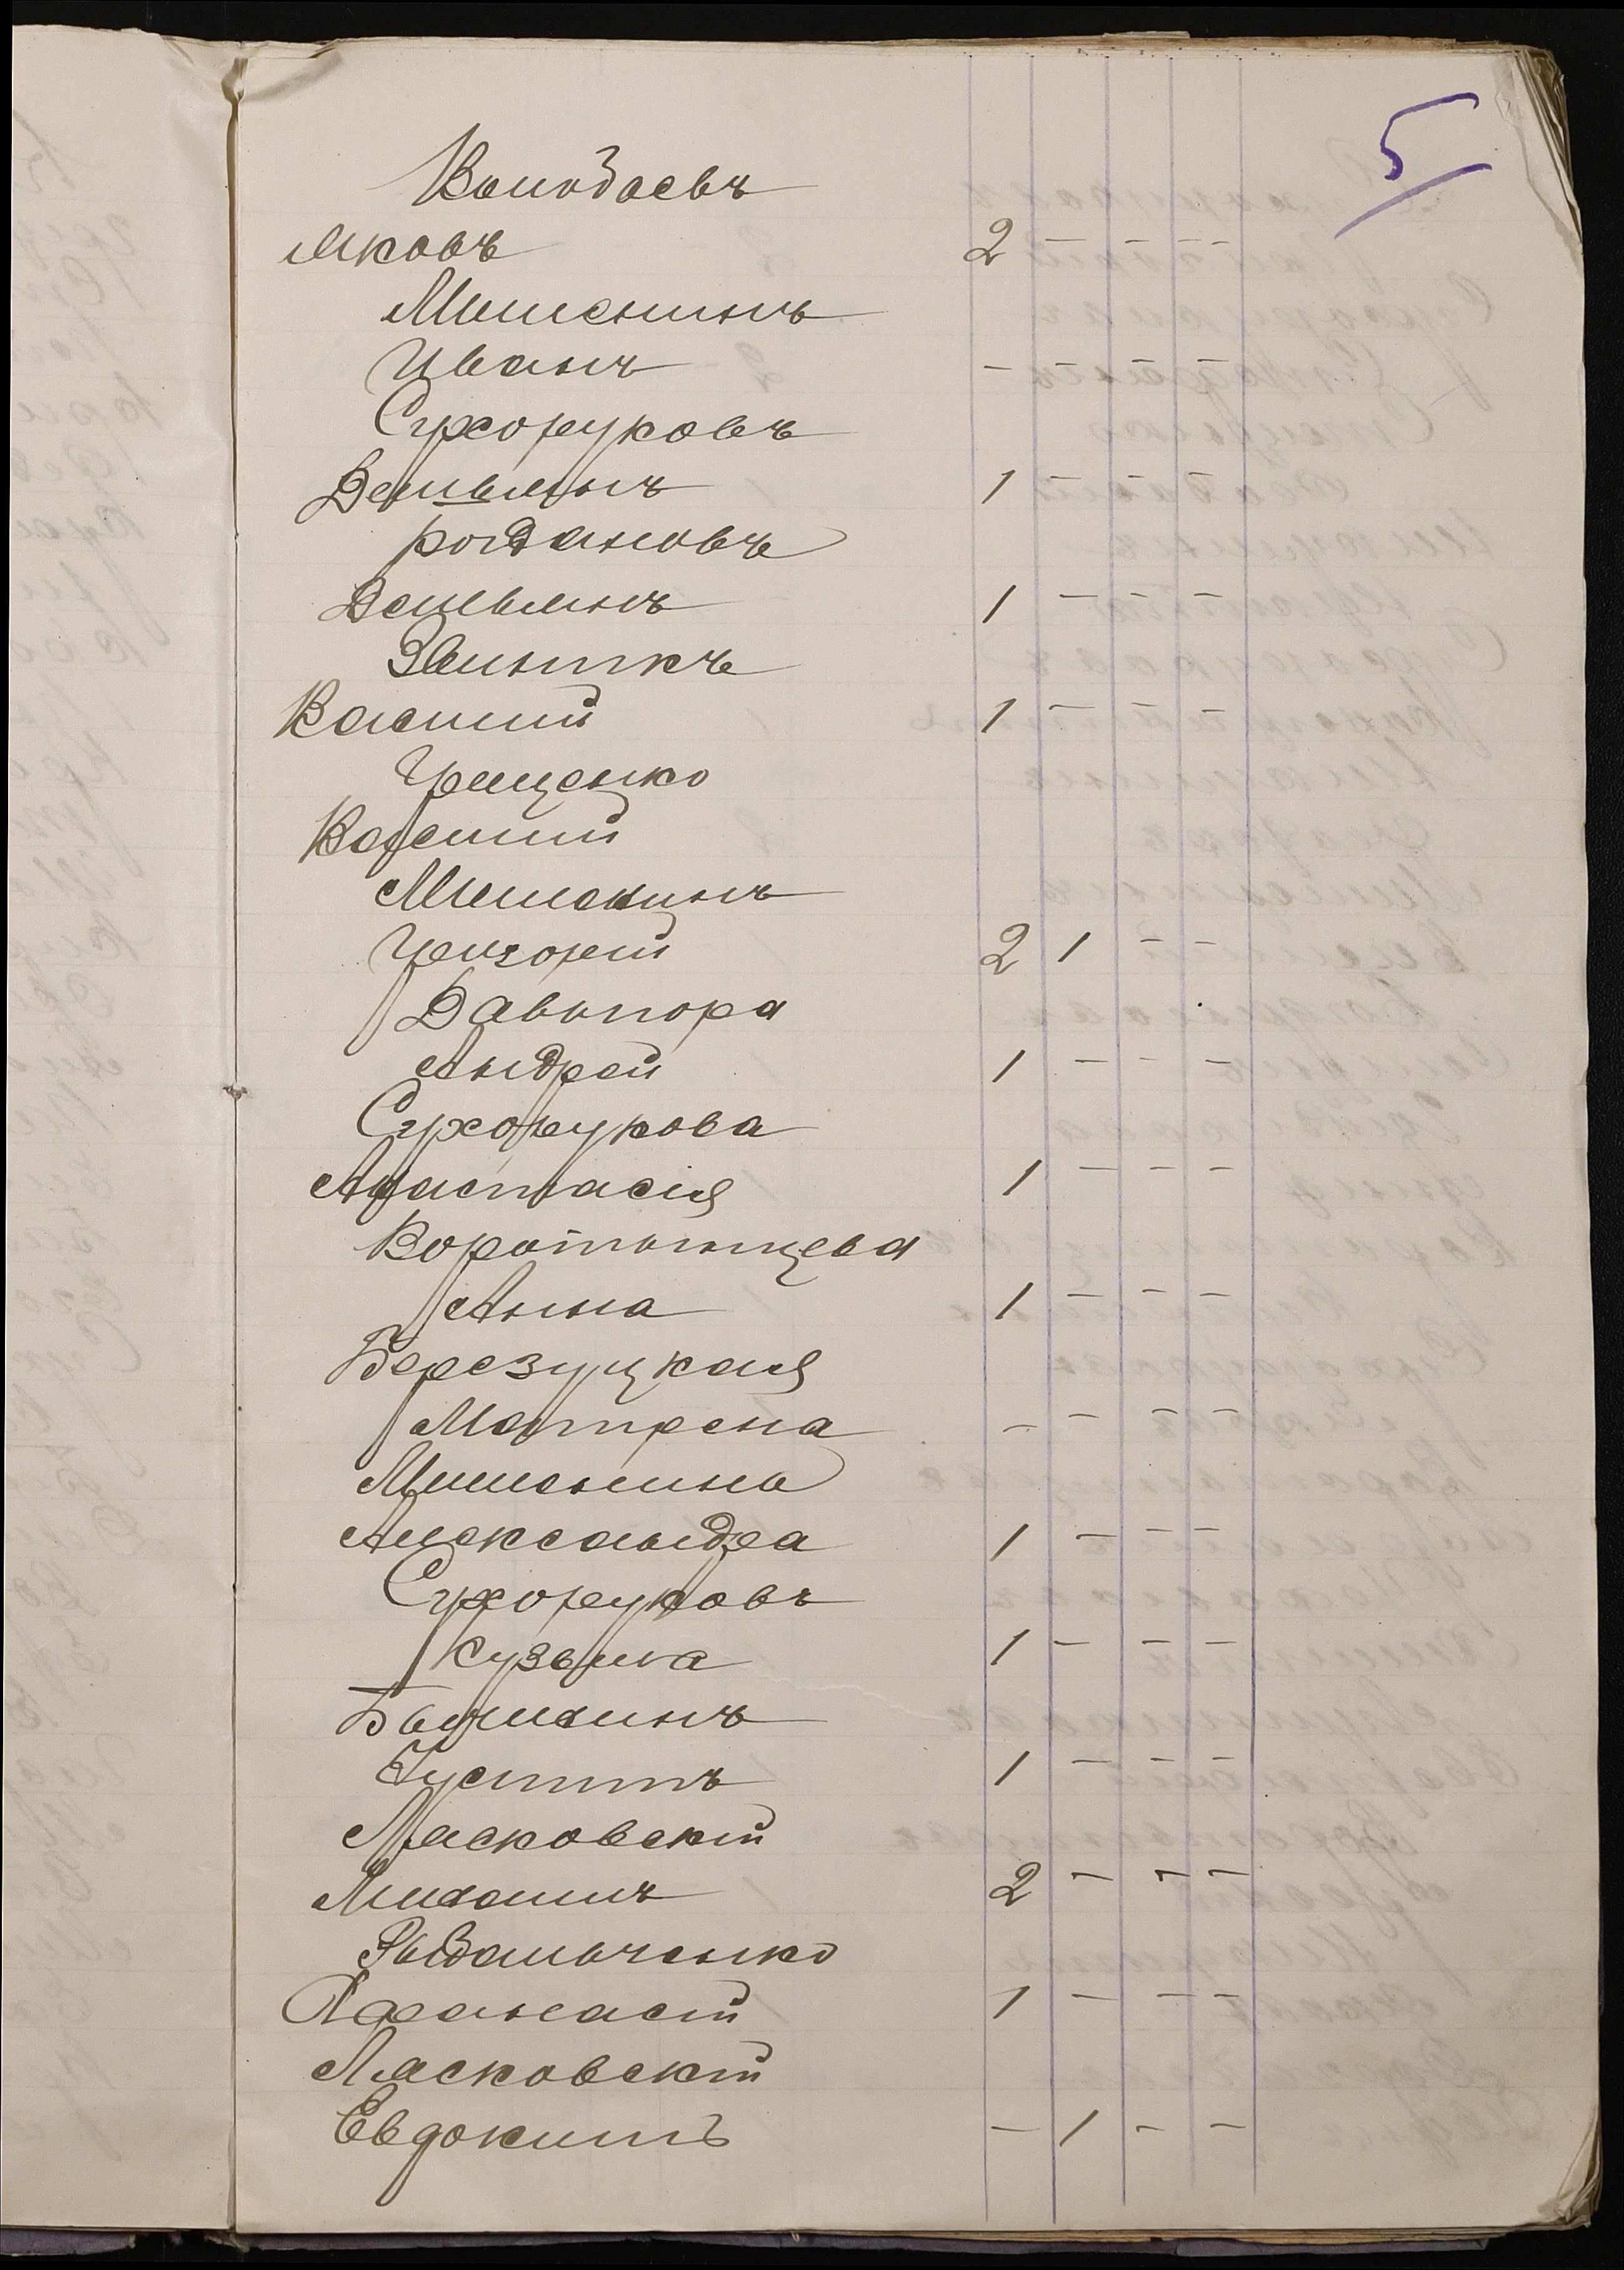 5
Яковъ 2 — — — —
Мишенинъ
Иванъ — — — —
Сухоруковъ
Демьянъ 1 — — —
Богдановъ
Демьянъ 1 — — —
Василий 1 — — —
Грищенко
Василий
Мишенинъ
Григорий 2 1 — —
Андрей 1 — — —
Сухорукова
Анастасия 1 — — —
Воротынцева
Анна 1 — — —
Березуцкая
Матрена — — — —
Мишенина
Александра 1 — — —
Сухоруковъ
Кузьма 1 — — —
Устинъ 1 — — —
Ласковский
Михаилъ 2 — — —
Рыбальченко
Афанасий 1 — — —
Ласковский
Евдокимъ — 1 — —